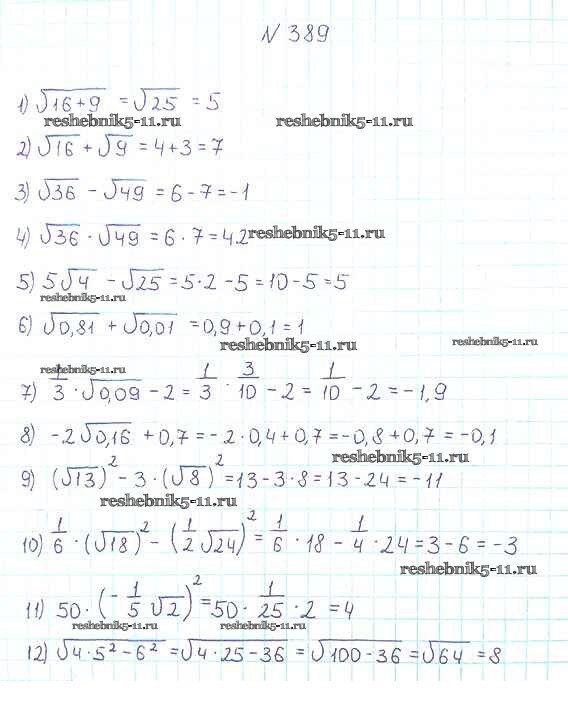 N 389
1) √16+9 = √25 = 5
reshebnik5-11.ru reshebnik5-11.ru
2) √16 + √9 = 4+3 = 7
3) √36 - √49 = 6-7 = -1
4) √36 · √49 = 6·7 = 42 reshebnik5-11.ru
5) 5√4 - √25 = 5·2 - 5 = 10-5 = 5
reshebnik5-11.ru
6) √0,81 + √0,01 = 0,9+0,1 = 1
reshebnik5-11.ru reshebnik5-11.ru
reshebnik5-11.ru
7) 1/3 · √0,09 - 2 = 1/3 · 3/10 - 2 = 1/10 - 2 = -1,9
8) -2√0,16 + 0,7 = -2·0,4+0,7 = -0,8+0,7 = -0,1
reshebnik5-11.ru
9) (√13)² - 3·(√8)² = 13-3·8 = 13-24 = -11
reshebnik5-11.ru
10) 1/6 · (√18)² - (1/2 √24)² = 1/6 · 18 - 1/4 · 24 = 3-6 = -3
reshebnik5-11.ru
11) 50·(-1/5 √2)² = 50 · 1/25 · 2 = 4
reshebnik5-11.ru reshebnik5-11.ru
12) √4·5²-6² = √4·25-36 = √100-36 = √64 = 8